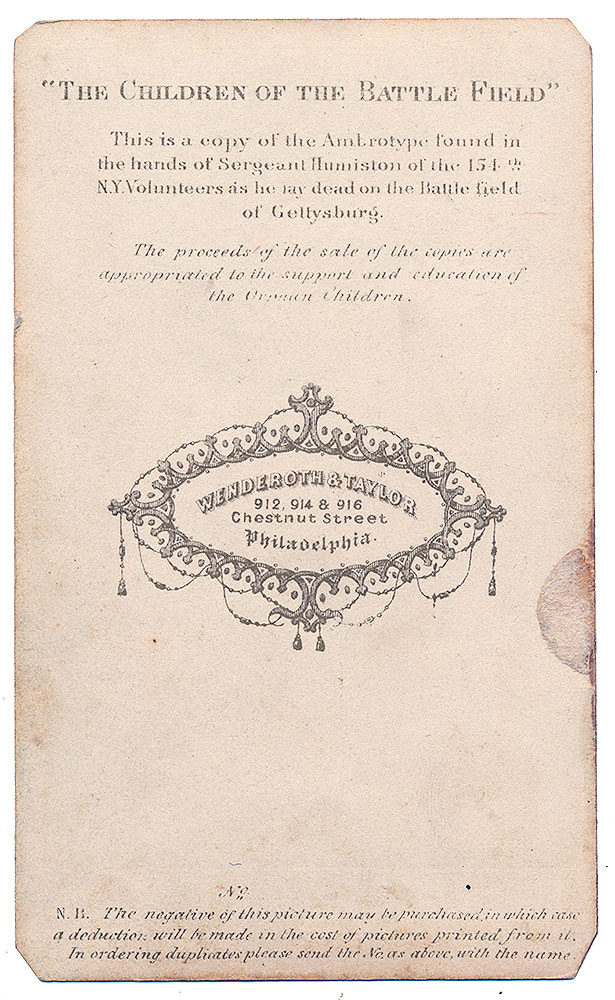 "THE CHILDREN OF THE BATTLE FIELD"
This is a copy of the Ambrotype found in
the hands of Sergeant Humiston of the 154th
N.Y. Volunteers as he lay dead on the Battle field
of Gettysburg.
The proceeds of the sale of the copies are
appropriated to the support and education of
the Orphan Children.
WENDEROTH & TAYLOR
912, 914 & 916
Chestnut Street
Philadelphia.
No.
N.B. The negative of this picture may be purchased, in which case
a deduction will be made in the cost of pictures printed from it.
In ordering duplicates please send the No. as above, with the name